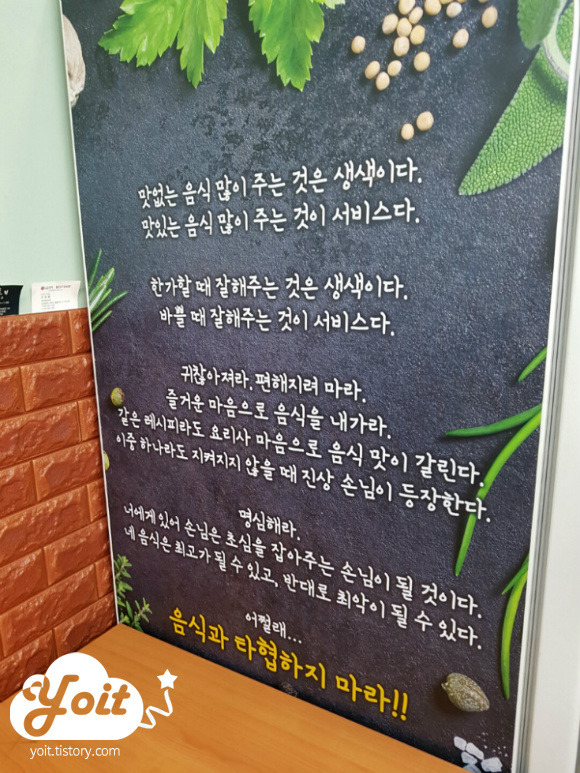 맛없는 음식 많이 주는 것은 생색이다.
맛있는 음식 많이 주는 것이 서비스다.
한가할 때 잘해주는 것은 생색이다.
바쁠 때 잘해주는 것이 서비스다.
귀찮아져라. 편해지려 마라.
즐거운 마음으로 음식을 내가라.
같은 레시피라도 요리사 마음으로 음식 맛이 갈린다.
이중 하나라도 지켜지지 않을 때 진상 손님이 등장한다.
명심해라.
너에게 있어 손님은 초심을 잡아주는 손님이 될 것이다.
네 음식은 최고가 될 수 있고, 반대로 최악이 될 수 있다.
어쩔래...
음식과 타협하지 마라!!
Yoit
yoit.tistory.com